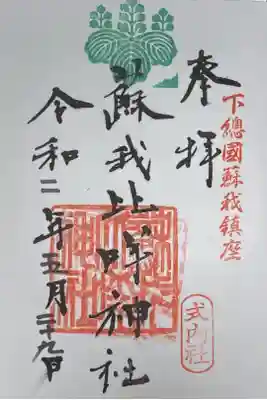 下總國蘇我鎮座
奉拝
蘇我比咩神社
式内社
令和二年五月二十九日